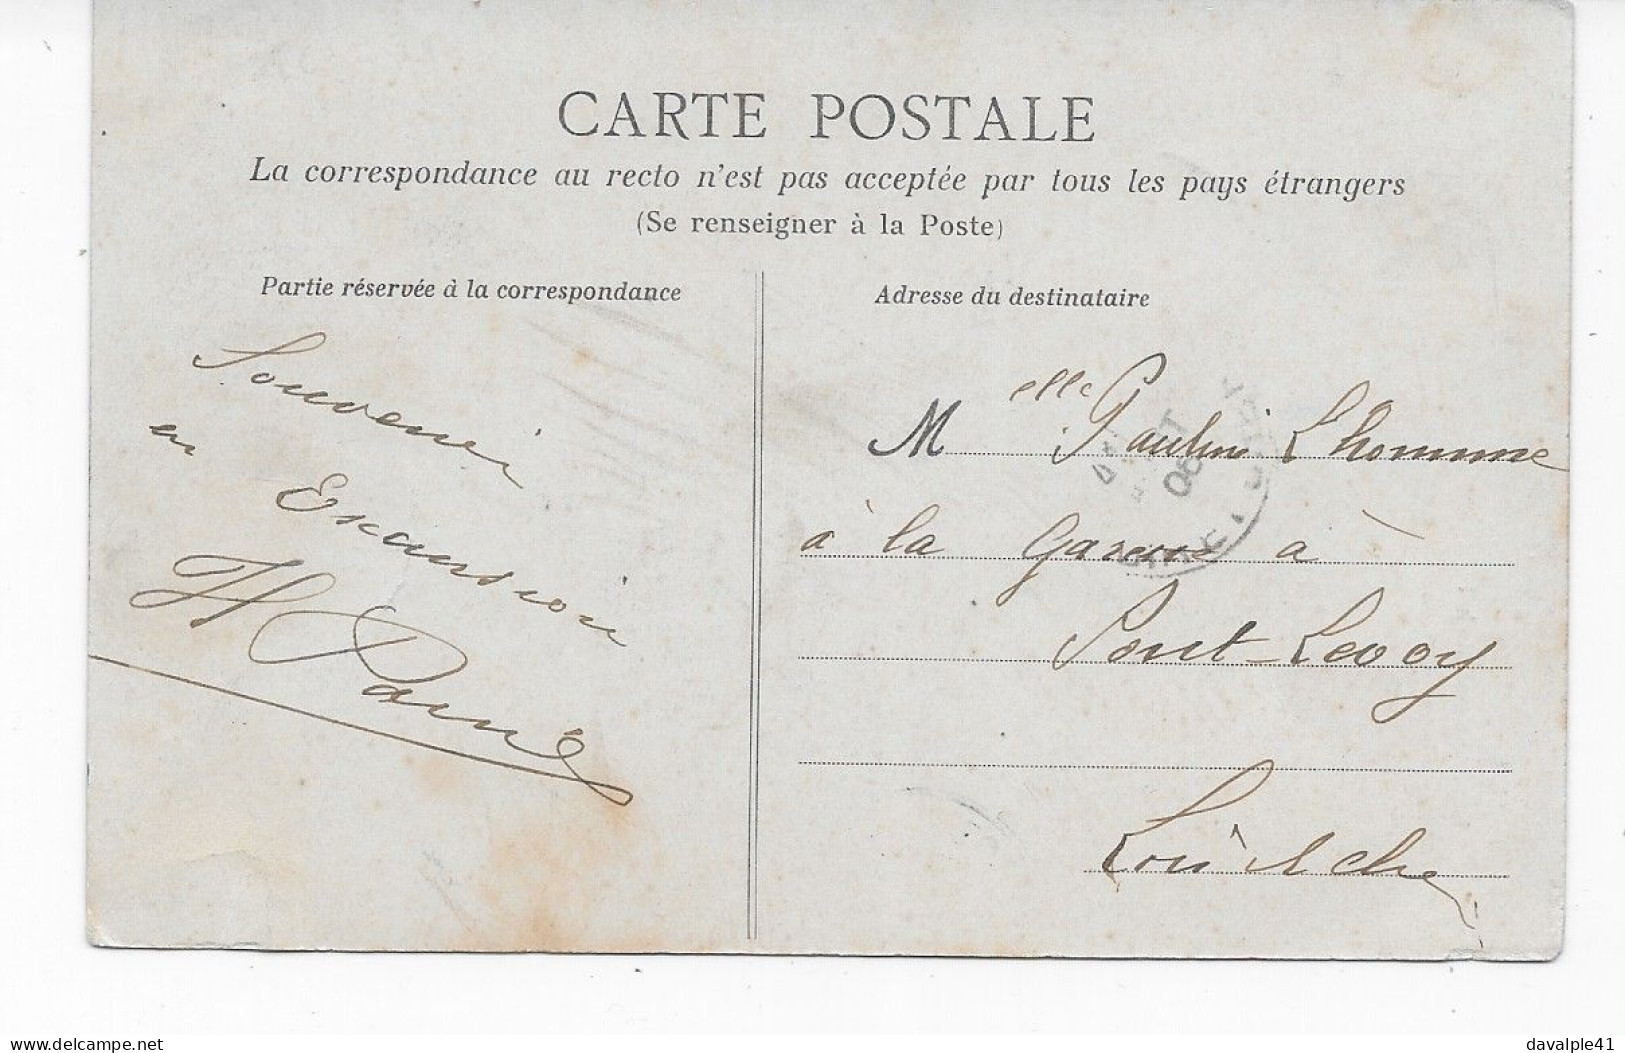 CARTE POSTALE
La correspondance au recto n'est pas acceptée par tous les pays étrangers
(Se renseigner à la Poste)
Partie réservée à la correspondance
Adresse du destinataire
Souvenir
en
Excursion
M elle Pauline Lhomme
à la Garenne à
Pont-Levoy
Loir et cher
06
delcampe.net
davalple41